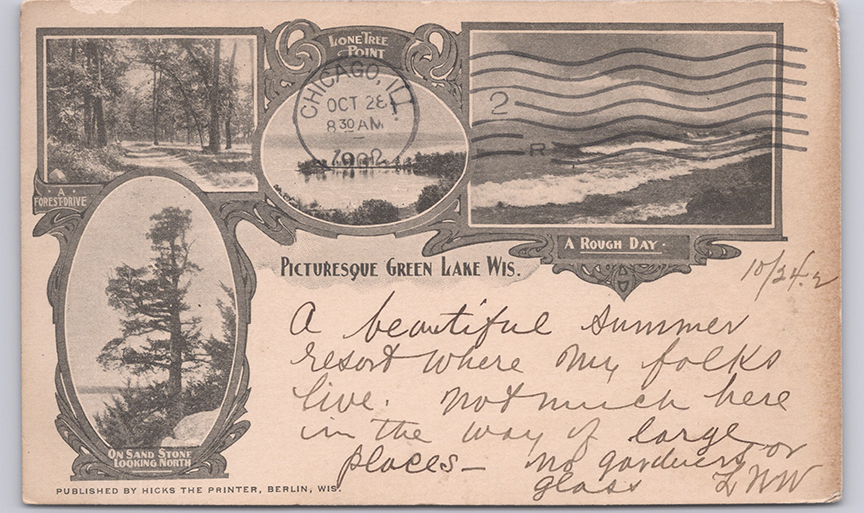 LONE TREE
POINT
CHICAGO, ILL.
OCT 28
8 30 AM
1902
2
R
A
FOREST DRIVE
A ROUGH DAY
PICTURESQUE GREEN LAKE WIS.
10/24.2
A beautiful summer
resort where my folks
live. Not much here
in the way of large
places — no gardners or
glass
ON SAND STONE
LOOKING NORTH
PUBLISHED BY HICKS THE PRINTER, BERLIN, WIS.